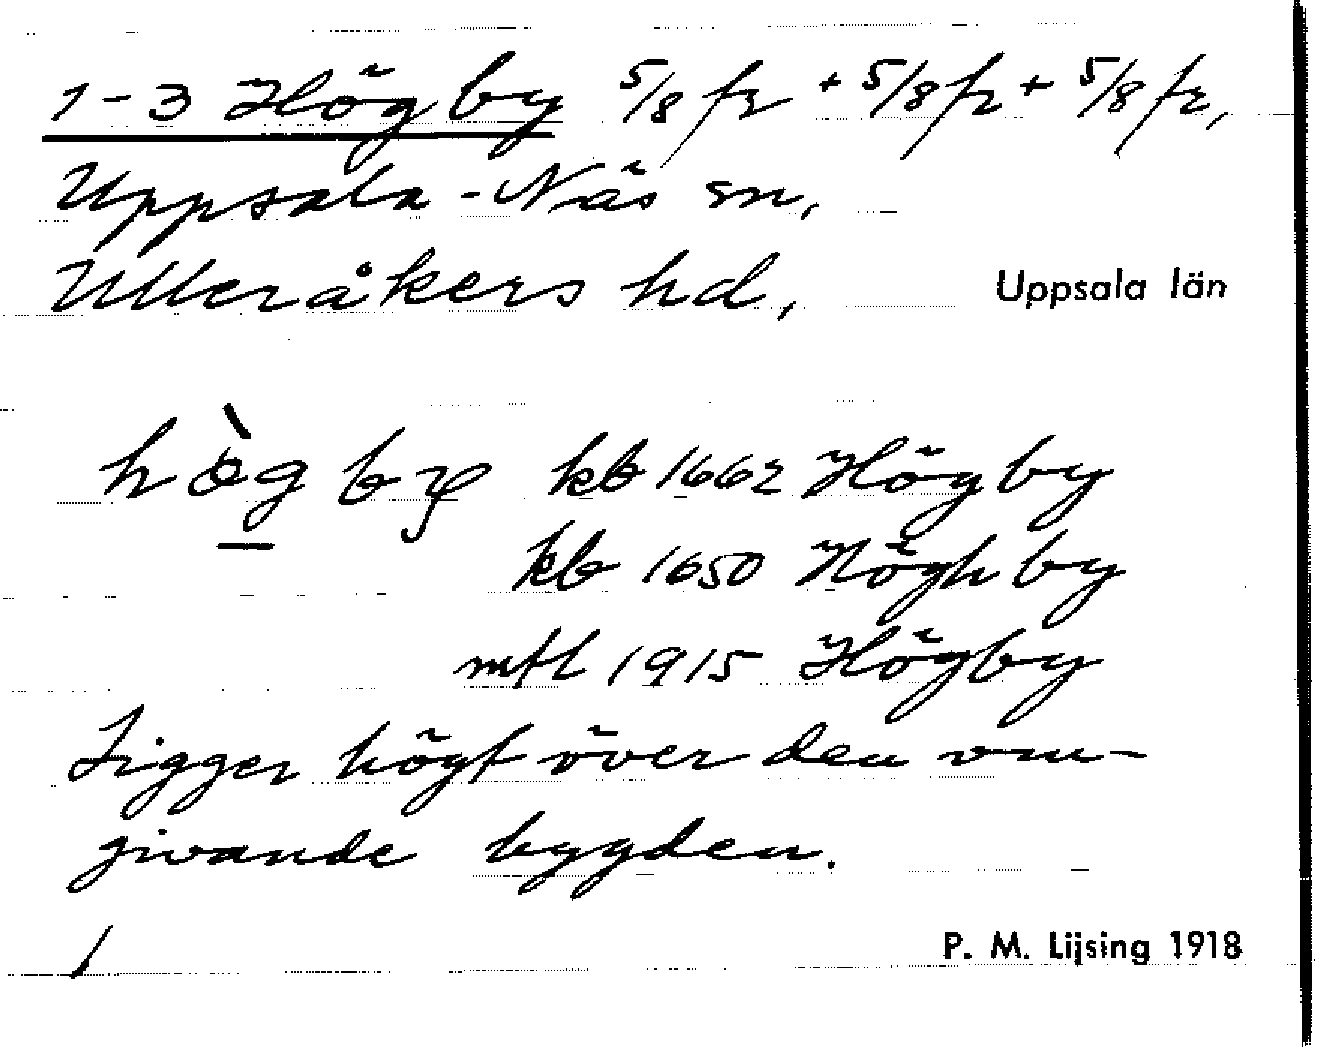 1-3 Högby 5/8 fr + 5/8 fr + 5/8 fr,
Uppsala-Näs sn,
Ulleråkers hd, Uppsala län
hò̱gby kb 1662 Högby
kb 1650 Högh by
mtl 1915 Högby
Ligger högt över den om-
givande bygden.
P. M. Lijsing 1918